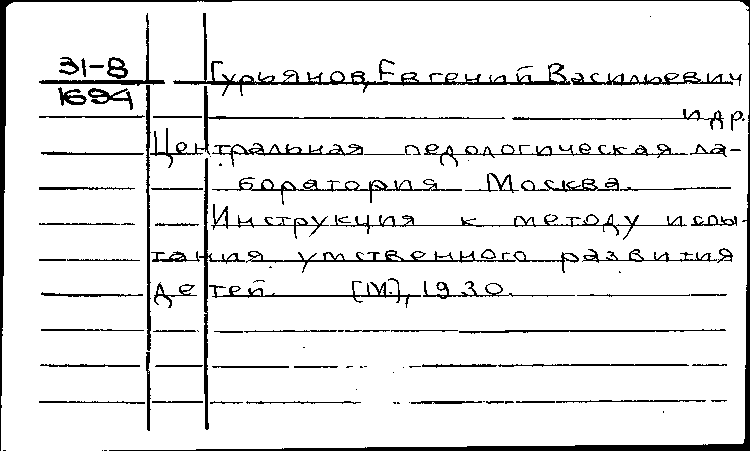 31-8
1694
Гурьянов, Евгений Васильевич
и др.
Центральная педологическая ла-
боратория Москва.
Инструкция к методу испы-
тания умственного развития
детей. [М.], 1930.